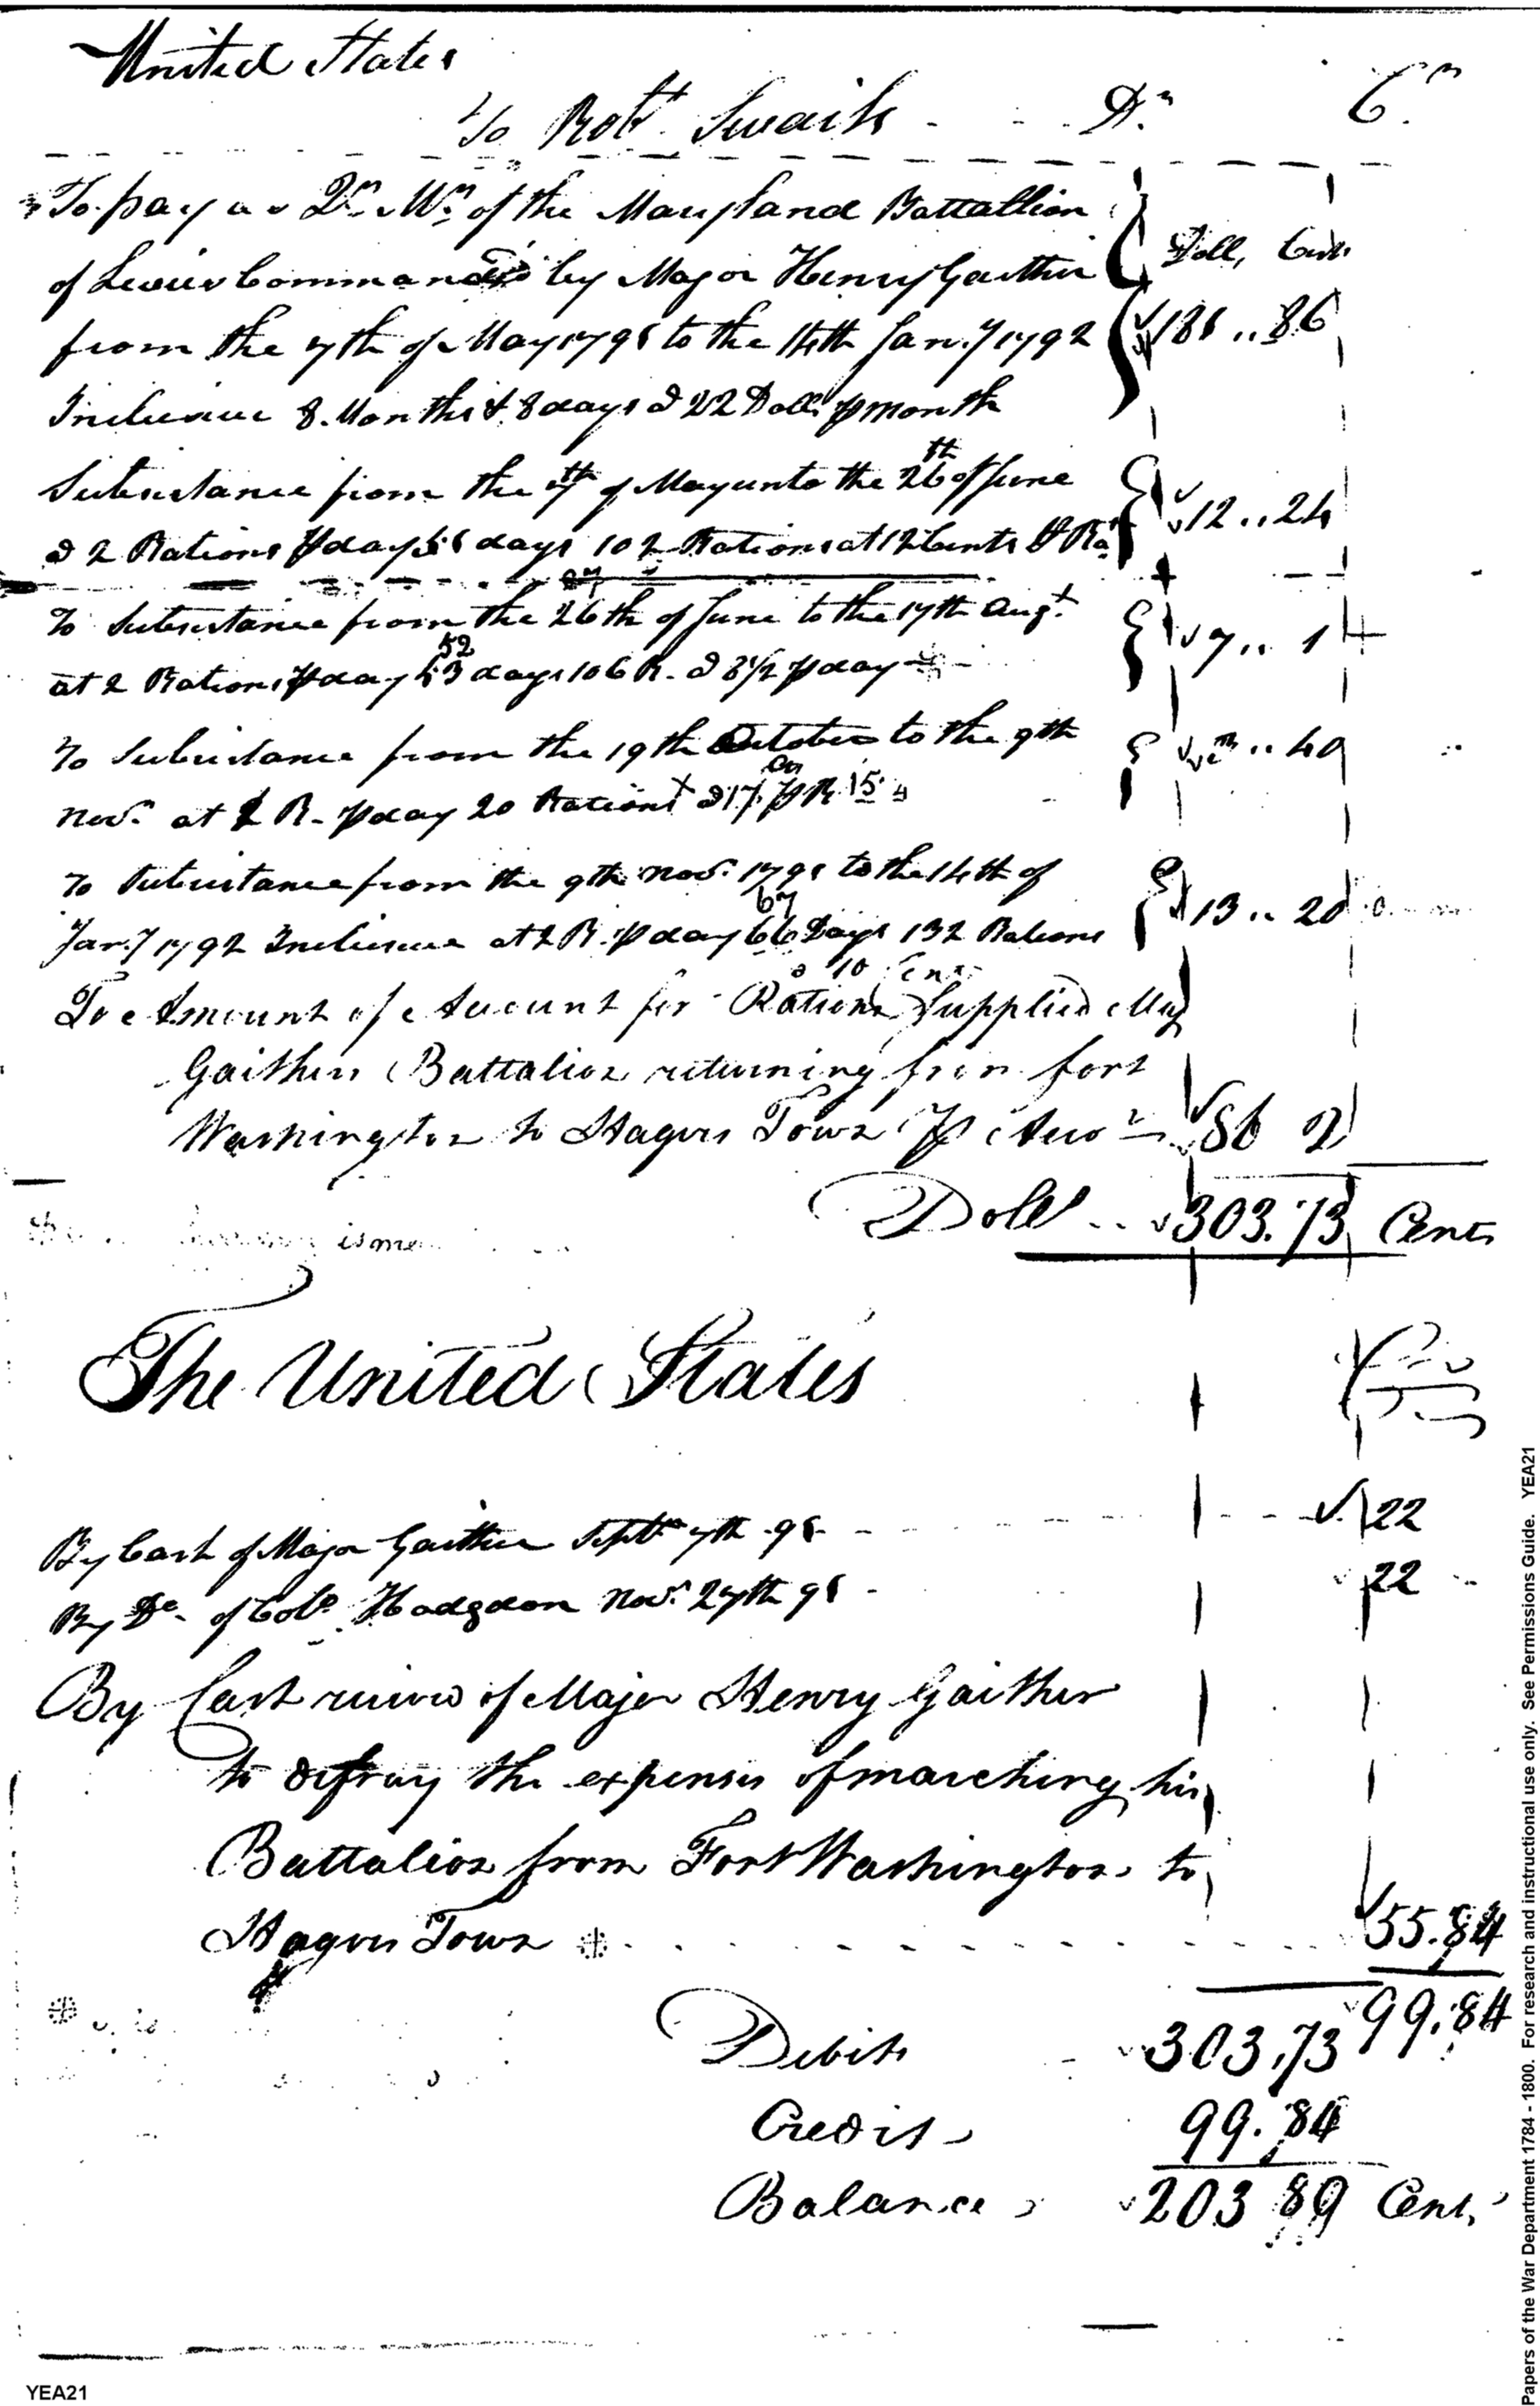 United States
To Robt. Swails - - - Dr. Cr.
To pay as Qr. Mr. of the Maryland Battallion
of Levies Commanded by Major Henry Gaither Doll, Cents
from the 7th of May 1791 to the 14th Jan.y 1792 181 .. 86
Inclusive 8. Months & 8 days @ 22 Doll. pr month
Subsistance from the 7th of May unto the 26th of June
@ 2 Rations pr day 51 days 102 Rations at 12 Cents pr Ra. 12 .. 24
27
To Subsistance from the 26th of June to the 17th Augt.
52
at 2 Rations pr day 53 days 106 R. @ 6 1/2 pr day 7 .. 14
To Subsistance from the 19th October to the 9th
Novr. at 2 R. pr day 20 Rations @ 17 pr R 15 40
To Subsistance from the 9th Novr. 1791 to the 14th of
67
Jan.y 1792 Inclusive at 2 R. pr day 66 Days 132 Rations 13 .. 20
@ 10 Cents
To Amount of Account for Rations Supplied Maj
Gaithers Battalion returning from fort
Washington to Hagers Town pr Acco 86
Dolls .. 303.73 Cents
The United States
By Cash of Major Gaither Septr 7th 91 - 22
By Do. of Colo. Hodgdon Novr. 27th 91 - 22
By Cash receivd of Major Henry Gaither
to defray the expenses of marching his
Battalion from Fort Washington to
Hagers Town 55.84
99.84
Debit 303.73
Credit 99.84
Balance 203 89 Cents
Papers of the War Department 1784 - 1800. For research and instructional use only. See Permissions Guide. YEA21
YEA21